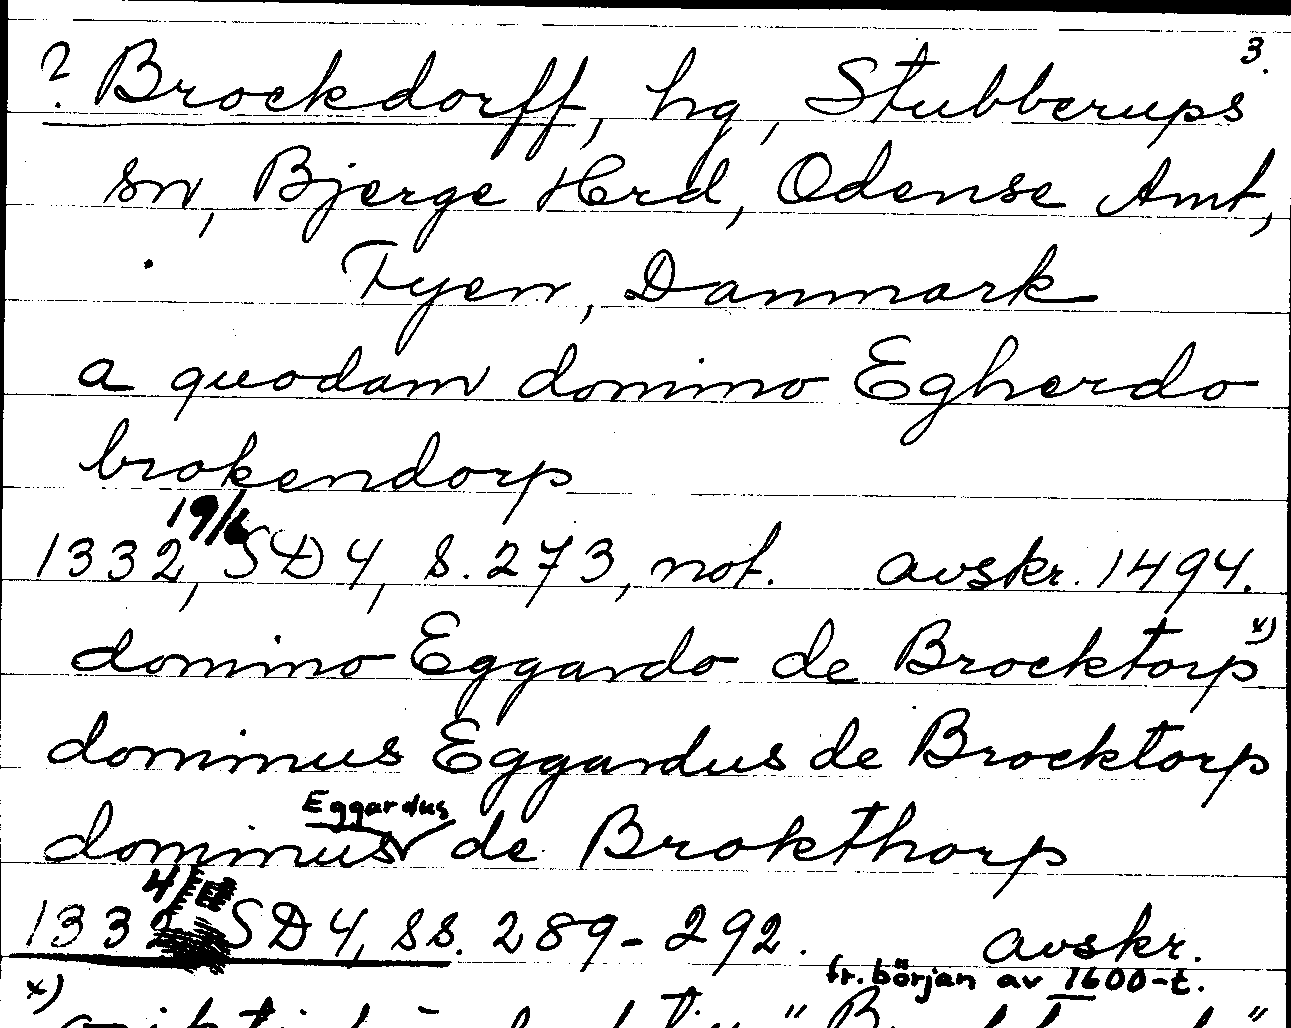 3.
? Brockdorff, hg, Stubberups
sn, Bjerge Hrd, Odense Amt,
Fyen, Danmark
a quodam domino Egherdo
brokendorp
19/6
1332, SD 4, s. 273, not. avskr. 1494.
domino Eggardo de Brocktorp x)
dominus Eggardus de Brocktorp
Eggardus
dominus de Brokthorp
1332 SD 4, ss. 289-292. avskr.
fr. början av 1600-t.
x)